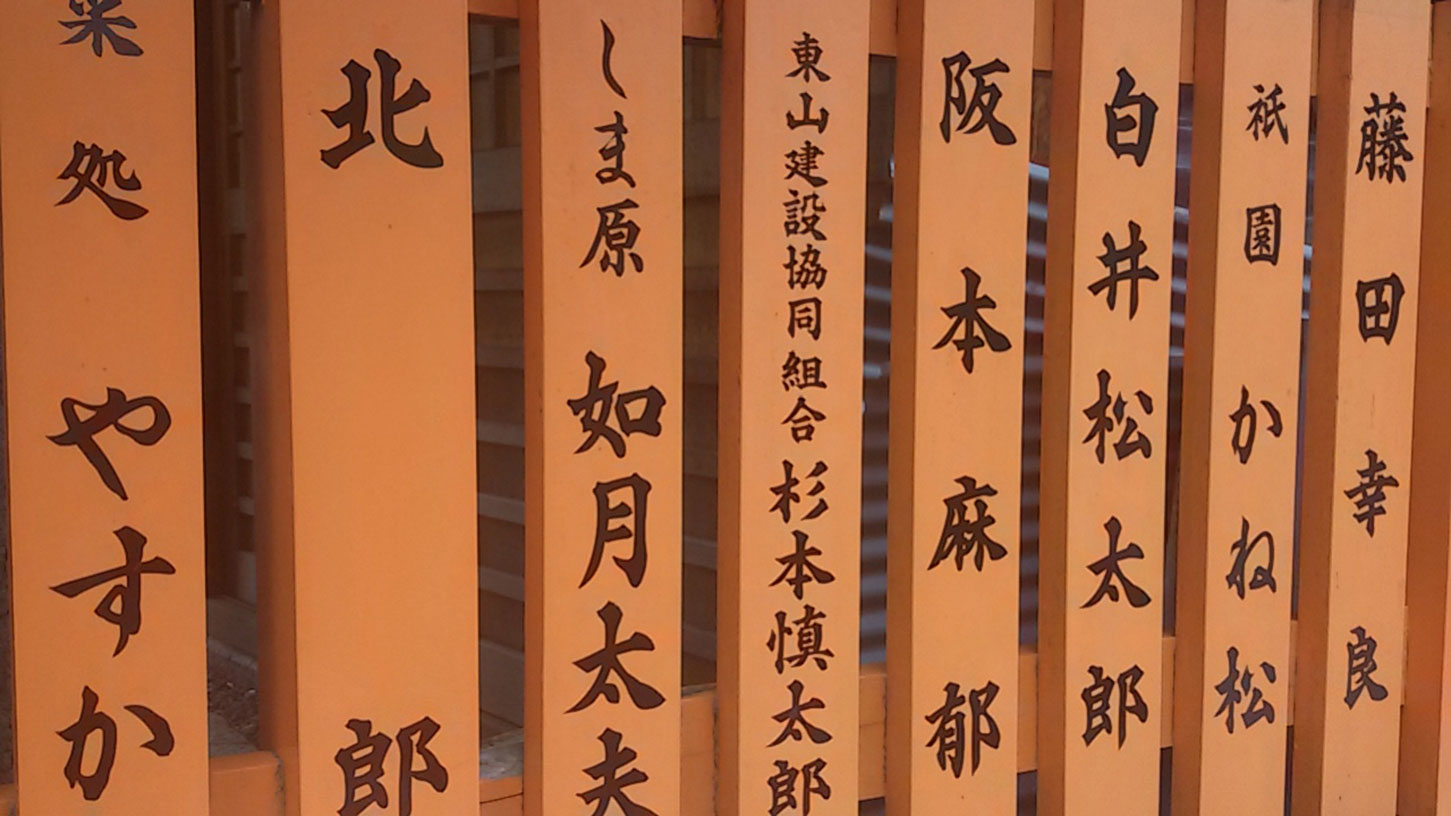 藤田幸良
祇園 かね松
白井松太郎
阪本麻郁
東山建設協同組合 杉本慎太郎
しま原 如月太夫
北 郎
菜処 やすか